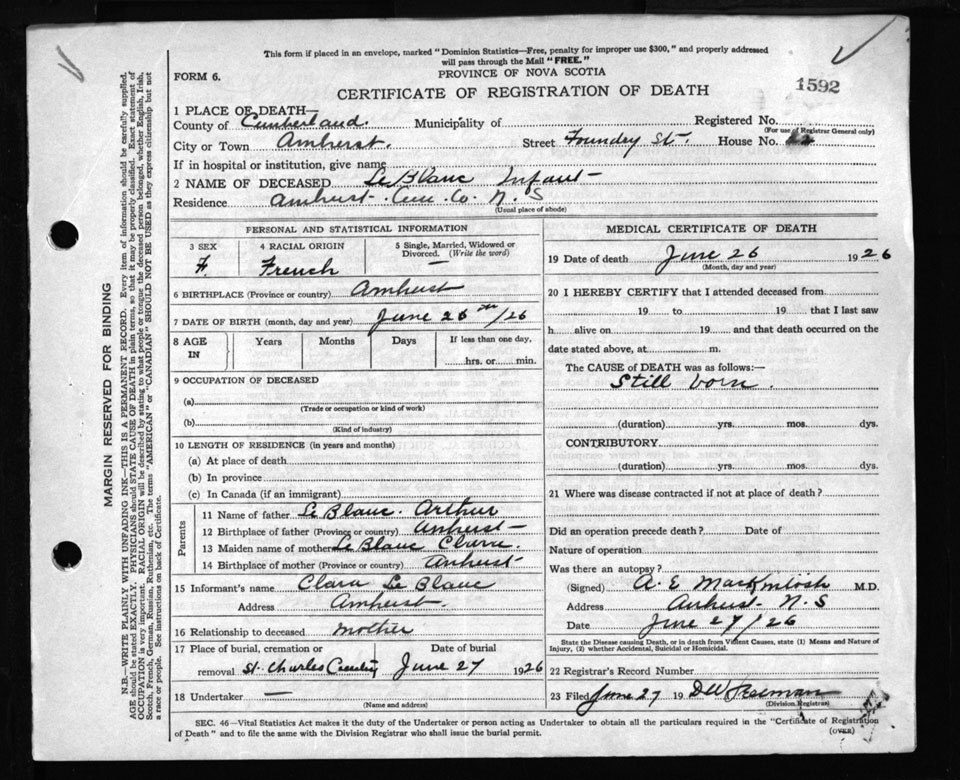 This form if placed in an envelope, marked "Dominion Statistics—Free, penalty for improper use $300," and properly addressed
will pass through the Mail "FREE."
FORM 6.
PROVINCE OF NOVA SCOTIA
1592
CERTIFICATE OF REGISTRATION OF DEATH
1 PLACE OF DEATH—
County of Cumberland. Municipality of Registered No.
(For use of Registrar General only)
City or Town Amherst. Street Foundry St. House No.
If in hospital or institution, give name
2 NAME OF DECEASED Le Blanc Infant
Residence Amherst. Cum. Co. N. S
(Usual place of abode)
PERSONAL AND STATISTICAL INFORMATION
3 SEX 4 RACIAL ORIGIN 5 Single, Married, Widowed or
Divorced. (Write the word)
F. French —
6 BIRTHPLACE (Province or country) Amherst
7 DATE OF BIRTH (month, day and year) June 26th/26
8 AGE IN Years Months Days If less than one day,
hrs. or min.
9 OCCUPATION OF DECEASED
(a)
(Trade or occupation or kind of work)
(b)
(Kind of industry)
10 LENGTH OF RESIDENCE (in years and months)
(a) At place of death
(b) In province
(c) In Canada (if an immigrant)
Parents
11 Name of father Le Blanc. Arthur
12 Birthplace of father (Province or country) Amherst
13 Maiden name of mother Le Blanc Clara.
14 Birthplace of mother (Province or country) Amherst
15 Informant's name Clara Le Blanc
Address Amherst.
16 Relationship to deceased mother
17 Place of burial, cremation or Date of burial
removal St. Charles June 27 1926
18 Undertaker —
(Name and address)
MEDICAL CERTIFICATE OF DEATH
19 Date of death June 26 1926
(Month, day and year)
20 I HEREBY CERTIFY that I attended deceased from
19 to 19 that I last saw
h alive on 19 and that death occurred on the
date stated above, at m.
The CAUSE of DEATH was as follows:—
Still born.
(duration) yrs. mos. dys.
CONTRIBUTORY
(duration) yrs. mos. dys.
21 Where was disease contracted if not at place of death?
Did an operation precede death? Date of
Nature of operation
Was there an autopsy?
(Signed) A. E MacKintosh M.D.
Address Amherst N. S
Date June 27/26
State the Disease causing Death, or in death from Violent Causes, state (1) Means and Nature of
Injury, (2) whether Accidental, Suicidal or Homicidal.
22 Registrar's Record Number
23 Filed June 27 19
(Division Registrar)
SEC. 46—Vital Statistics Act makes it the duty of the Undertaker or person acting as Undertaker to obtain all the particulars required in the "Certificate of Registration
of Death" and to file the same with the Division Registrar who shall issue the burial permit.
(OVER)
MARGIN RESERVED FOR BINDING
N.B.—WRITE PLAINLY WITH UNFADING INK—THIS IS A PERMANENT RECORD. Every item of information should be carefully supplied.
AGE should be stated EXACTLY. PHYSICIANS should STATE CAUSE OF DEATH in plain terms, so that it may be properly classified. Exact statement of
OCCUPATION is very important. RACIAL ORIGIN will be described by stating to what people or tongue the deceased person belonged, whether English, Irish,
Scotch, French, German, Russian, Ruthenian, etc. The terms "AMERICAN" or "CANADIAN" SHOULD NOT BE USED as they express citizenship but not
a race or people. See instructions on back of Certificate.